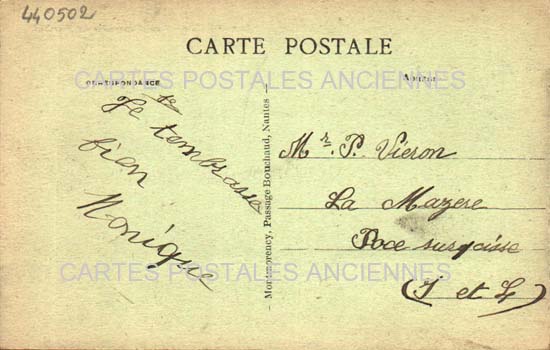 440502
CARTE POSTALE
CARTES POSTALES ANCIENNES
CORRESPONDANCE
te
Je tembrasse
bien
Monique
Montmorency, Passage Bouchaud, Nantes
Mr. P. Vieron
La Mazere
Roce sur
(I et L)
CARTES POSTALES ANCIENNES